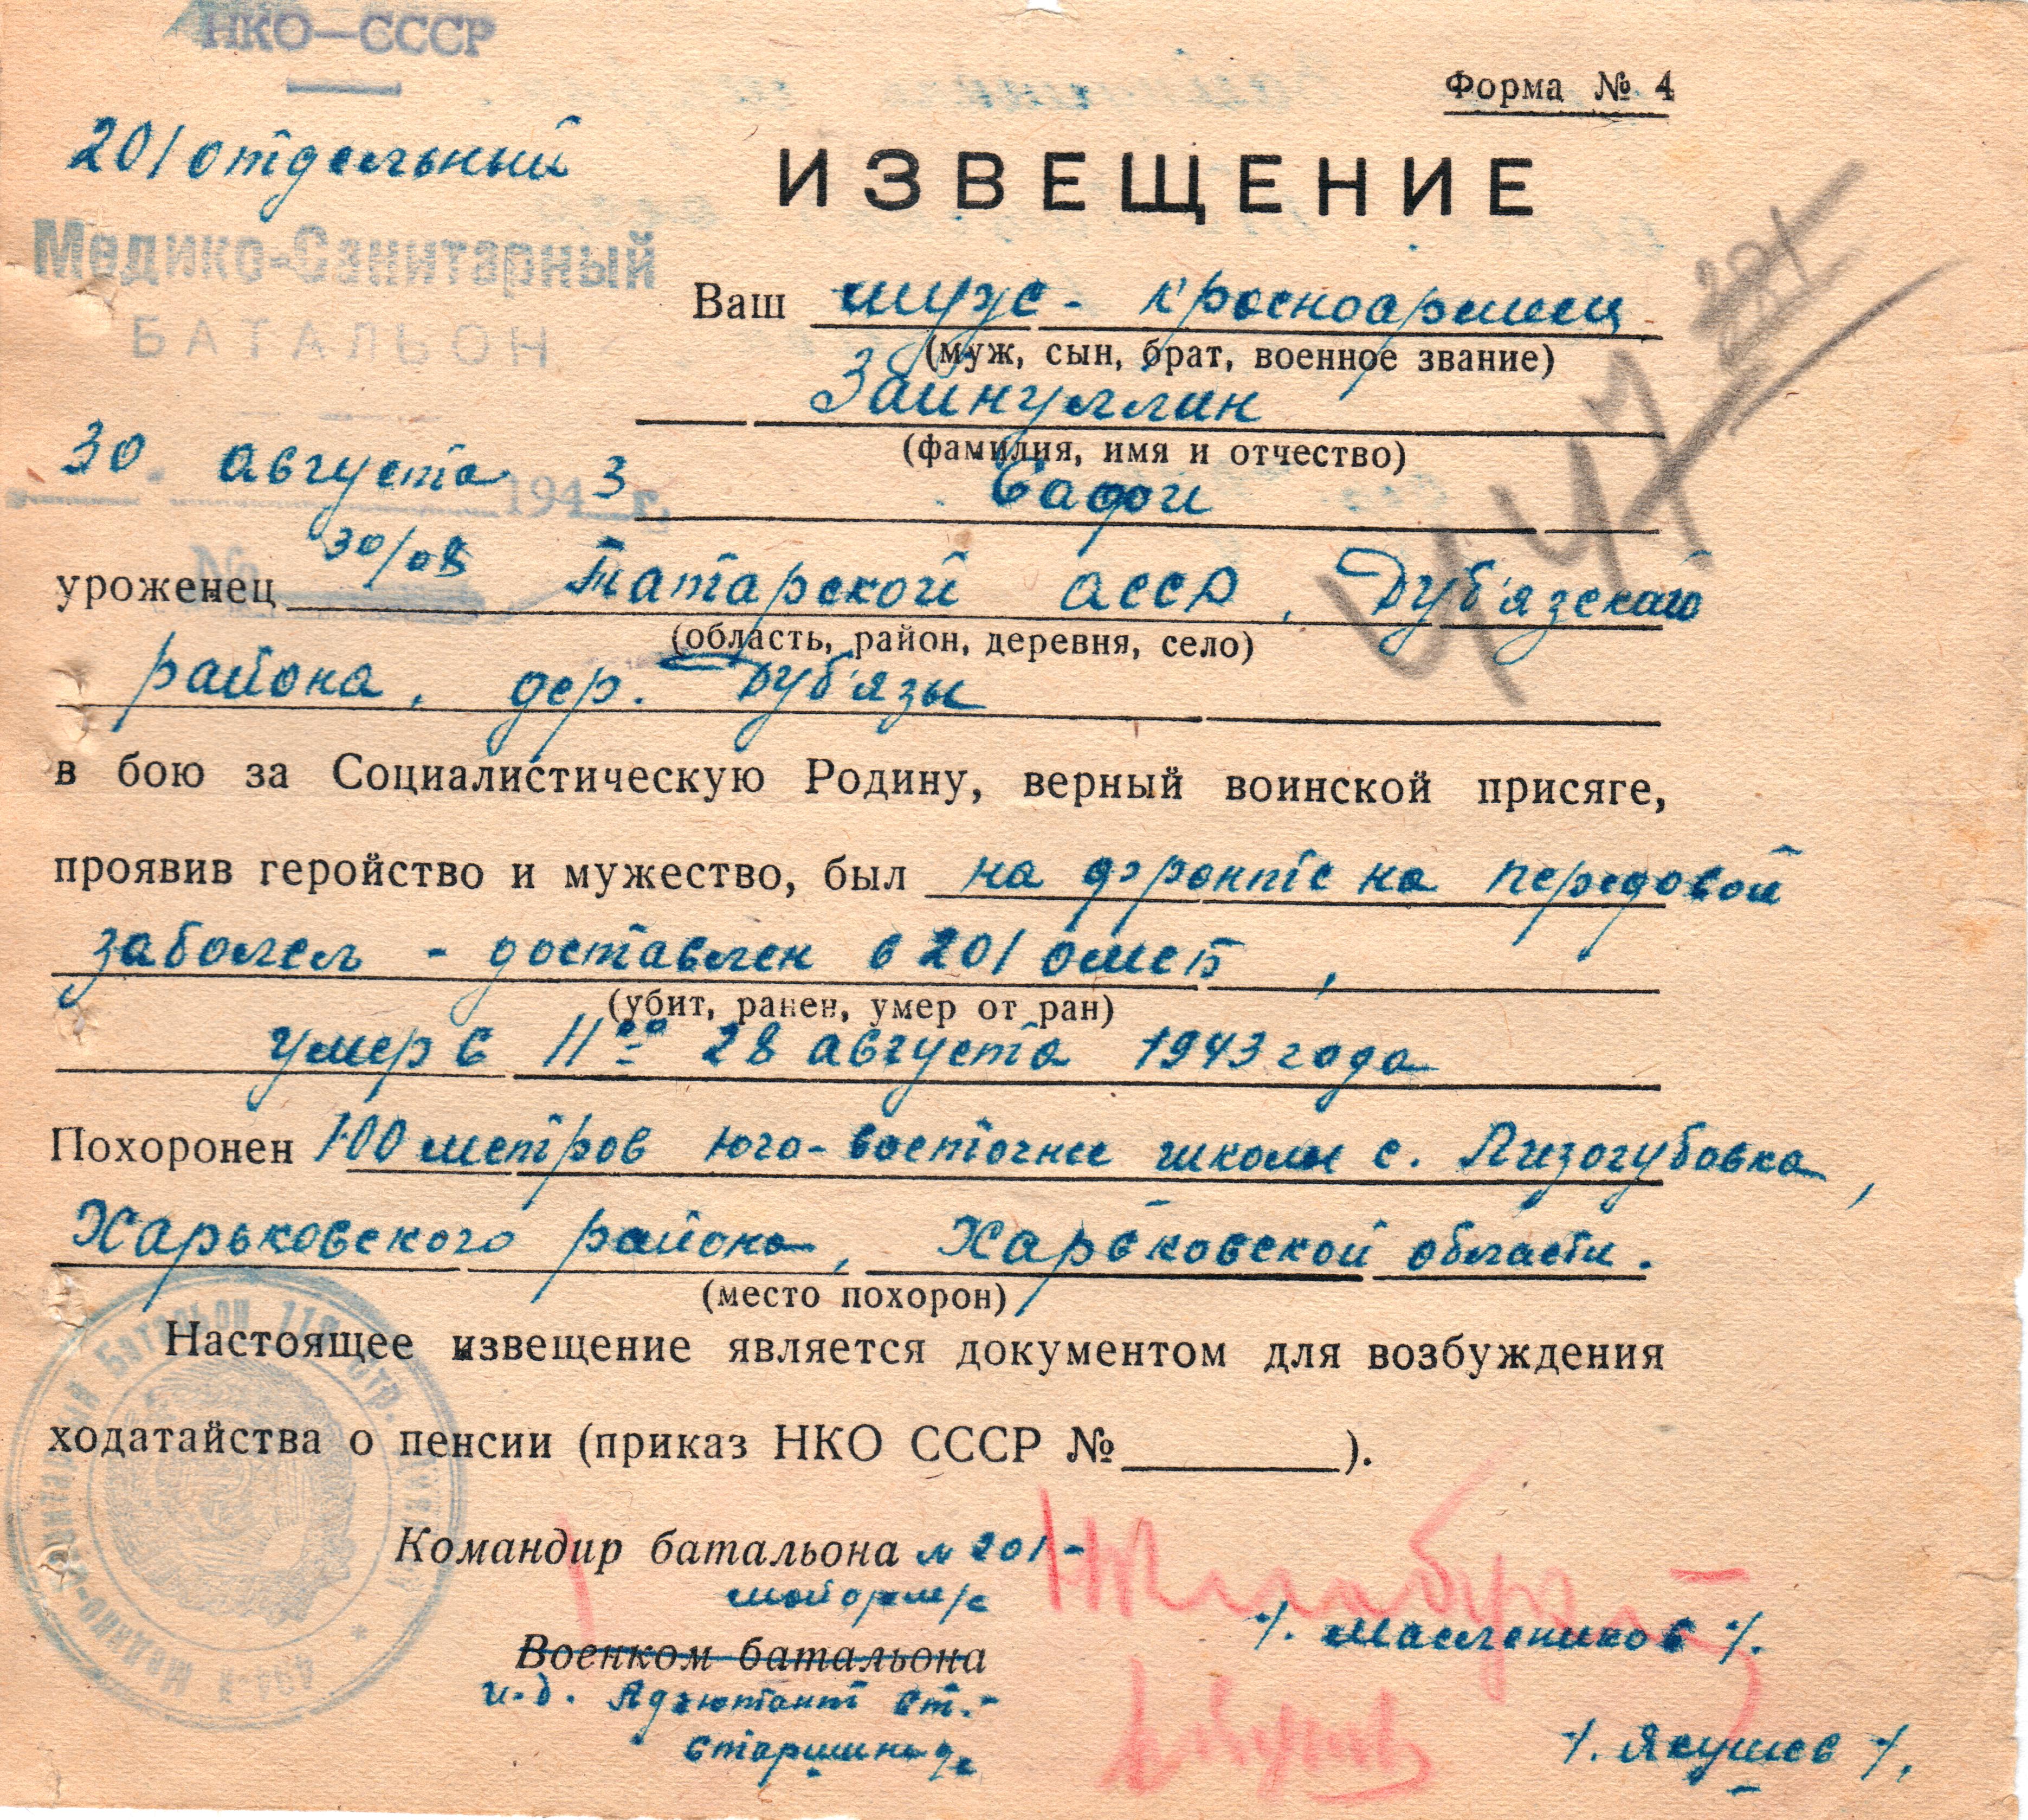 НКО—СССР
Форма № 4
201 отдельный
ИЗВЕЩЕНИЕ
Медико-Санитарный
БАТАЛЬОН
Ваш муж - красноармеец
(муж, сын, брат, военное звание)
Зайнуллин
(фамилия, имя и отчество)
30. августа 1943 г.
Сафи
№ 30/08
447
уроженец Татарской АССР, Дуб'язского
(область, район, деревня, село)
района, дер. Дуб'язы
в бою за Социалистическую Родину, верный воинской присяге,
проявив геройство и мужество, был на фронте на передовой
заболел - доставлен в 201 омсб,
(убит, ранен, умер от ран)
умер в 11 00 28 августа 1943 года
Похоронен 100 метров юго-восточнее школы с. Лизогубовка,
Харьковского района, Харьковской области.
(место похорон)
Настоящее извещение является документом для возбуждения
ходатайства о пенсии (приказ НКО СССР № ).
Командир батальона № 201 -
майор м/с
/. Маслеников /.
Военком батальона
и.д. Адъютант ст. -
старшина
/. Якушев /.
Медико-Санитарный Батальон